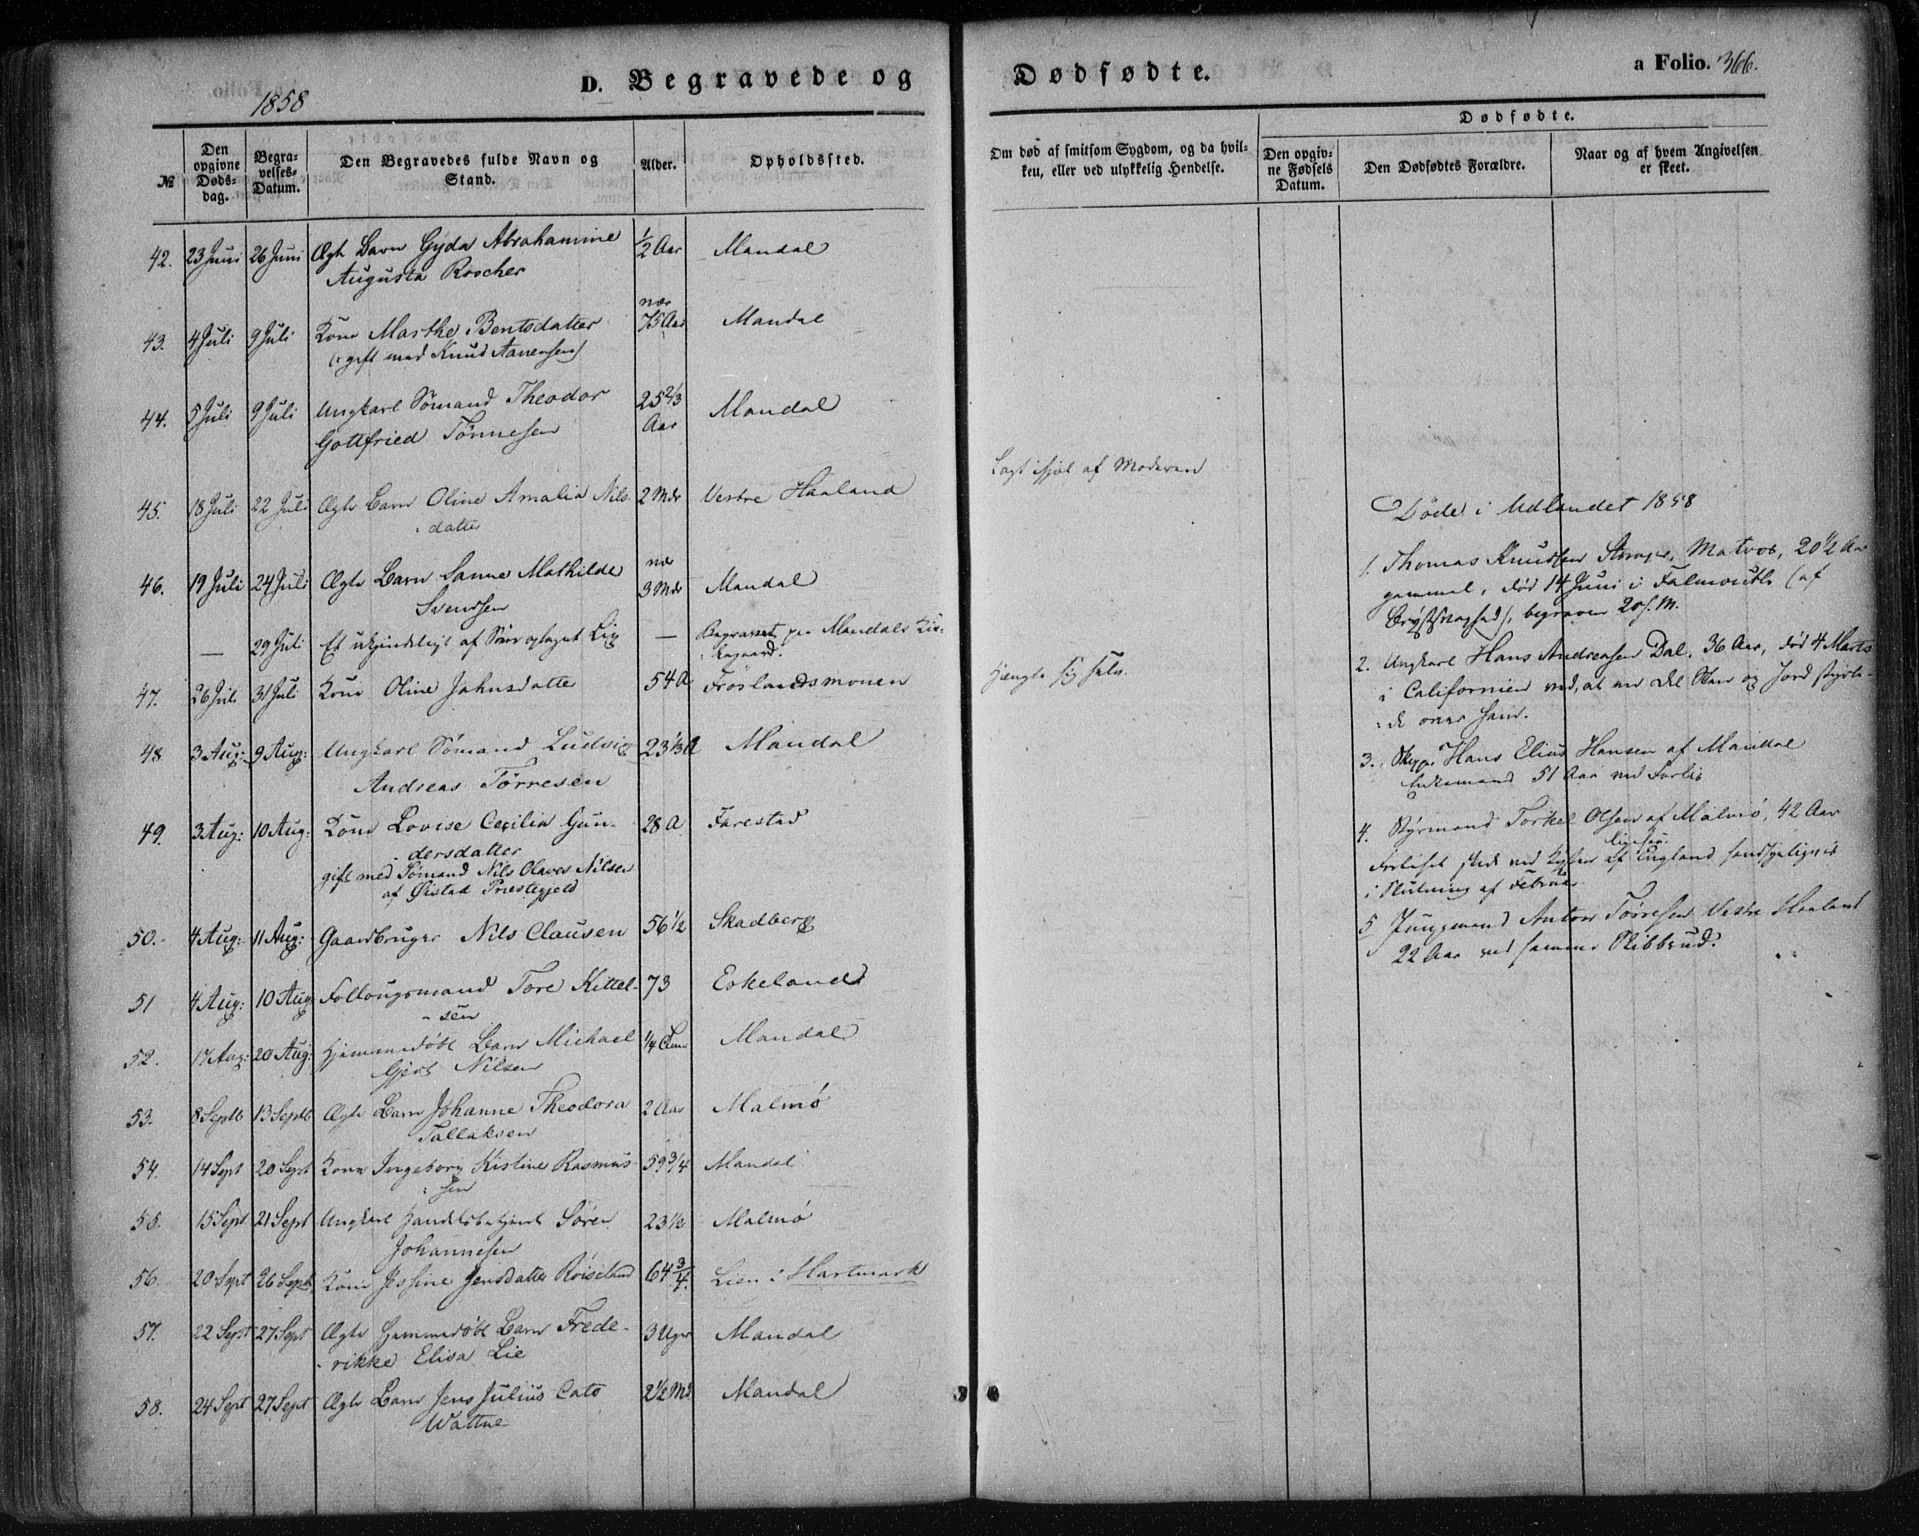 1858
D. Begravede og
Dødfødte.
a Folio. 366.
№
Den opgivne Døds-dag.
Begra-velses-Datum.
Den Begravedes fulde Navn og Stand.
Alder.
Opholdssted.
Om død af smitsom Sygdom, og da hvil-
ken, eller ved ulykkelig Hendelse.
Dødfødte.
Den opgiv-ne Fødsels Datum.
Den Dødfødtes Forældre.
Naar og af hvem Angivelsen er skeet.
42. 23 Juni 26 Juni Ægte Barn Gyda Abrahamine ½ Aar Mandal
Augusta Roscher
43. 4 Juli 9 Juli Kone Marthe Bentsdatter nær 75 Aar Mandal
(: gift med Knud Aanensen)
44. 5 Juli 9 Juli Ungkarl Sömand Theodor 25 2/3 Aar Mandal
Gottfried Tönnesen
45. 18 Juli 22 Juli Ægte Barn Oline Amalia Nils- 2 Mdr Vestre Haaland
datter
Lagt ihjel af Moderen
46. 19 Juli 24 Juli Ægte Barn Sanne Mathilde nær 3 Mdr Mandal
Svendsen
— 29 Juli Et ukjendeligt af Söen optaget Lig — Begravet paa Mandals Kir-
kegaard.
47. 26 Juli 31 Juli Kone Oline Jahnsdatter 54 A Fröslandsmonen
Hængte sig selv.
48 3 Aug: 9 Aug: Ungkarl Sömand Ludvig 23 1/3 A Mandal
Andreas Törresen
49. 3 Aug: 10 Aug: Kone Lovise Cecilia Gun- 28 A Farestad
dersdatter
gift med Sömand Nils Olaves Nilsen
af Öistad Præstegjeld
50. 4 Aug: 11 Aug: Gaardbruger Nils Clausen 56 ½ Skadberg
51 4 Aug: 10 Aug: Follougsmand Tore Kittel- 73 Eskeland
sen
52. 17 Aug: 20 Aug: Hjemmedöbt Barn Michael 1/4 Mandal
Gjert Nilsen
53. 8 Septb 13 Septb Ægte Barn Johanne Theodora 2 Aar Malmö
Tallaksen
54. 14 Sept 20 Sept Kone Ingeborg Kistine Rasmus- 59 3/4 Mandal
sen
55. 15 Sept 21 Sept Ungkarl Handelsbetjent Sören 23 ½ Malmö
Johannesen
56. 20 Sept 26 Sept Kone Jessine Jensdatter Röiseland 64 3/4 Lien i Hartmark
57. 22 Sept 27 Sept Ægte Hjemmedöbt Barn Frede- 3 Uger Mandal
rikke Elisa Lie
58. 24 Sept 27 Sept Ægte Barn Jens Julius Cato 2½ Md Mandal
Wattne
Döde i Udlandet 1858
1. Thomas Knudsen Matros, 20 ½ Aar
gammel, död 14 Juni i Falmouth (af
Brystsvaghed), begraven 20 s. M.
2. Ungkarl Hans Andreasen Dal. 36 Aar, död 4 Marts
i Californien ved, at en Del Sten og Jord styrte-
de over ham.
3. Skipper Hans Elius Hansen af Mandal
Enkemand 51 Aar ved Forlis
4. Styrmand Torkel Olsen af Malmö, 42 Aar
ligesaa
Forliset skede ved Kysten af England sandsynligvis
i Slutning af Februar
5 Jungmand Anton Törresen Vestre Haaland
22 Aar ved samme Skibbrud.